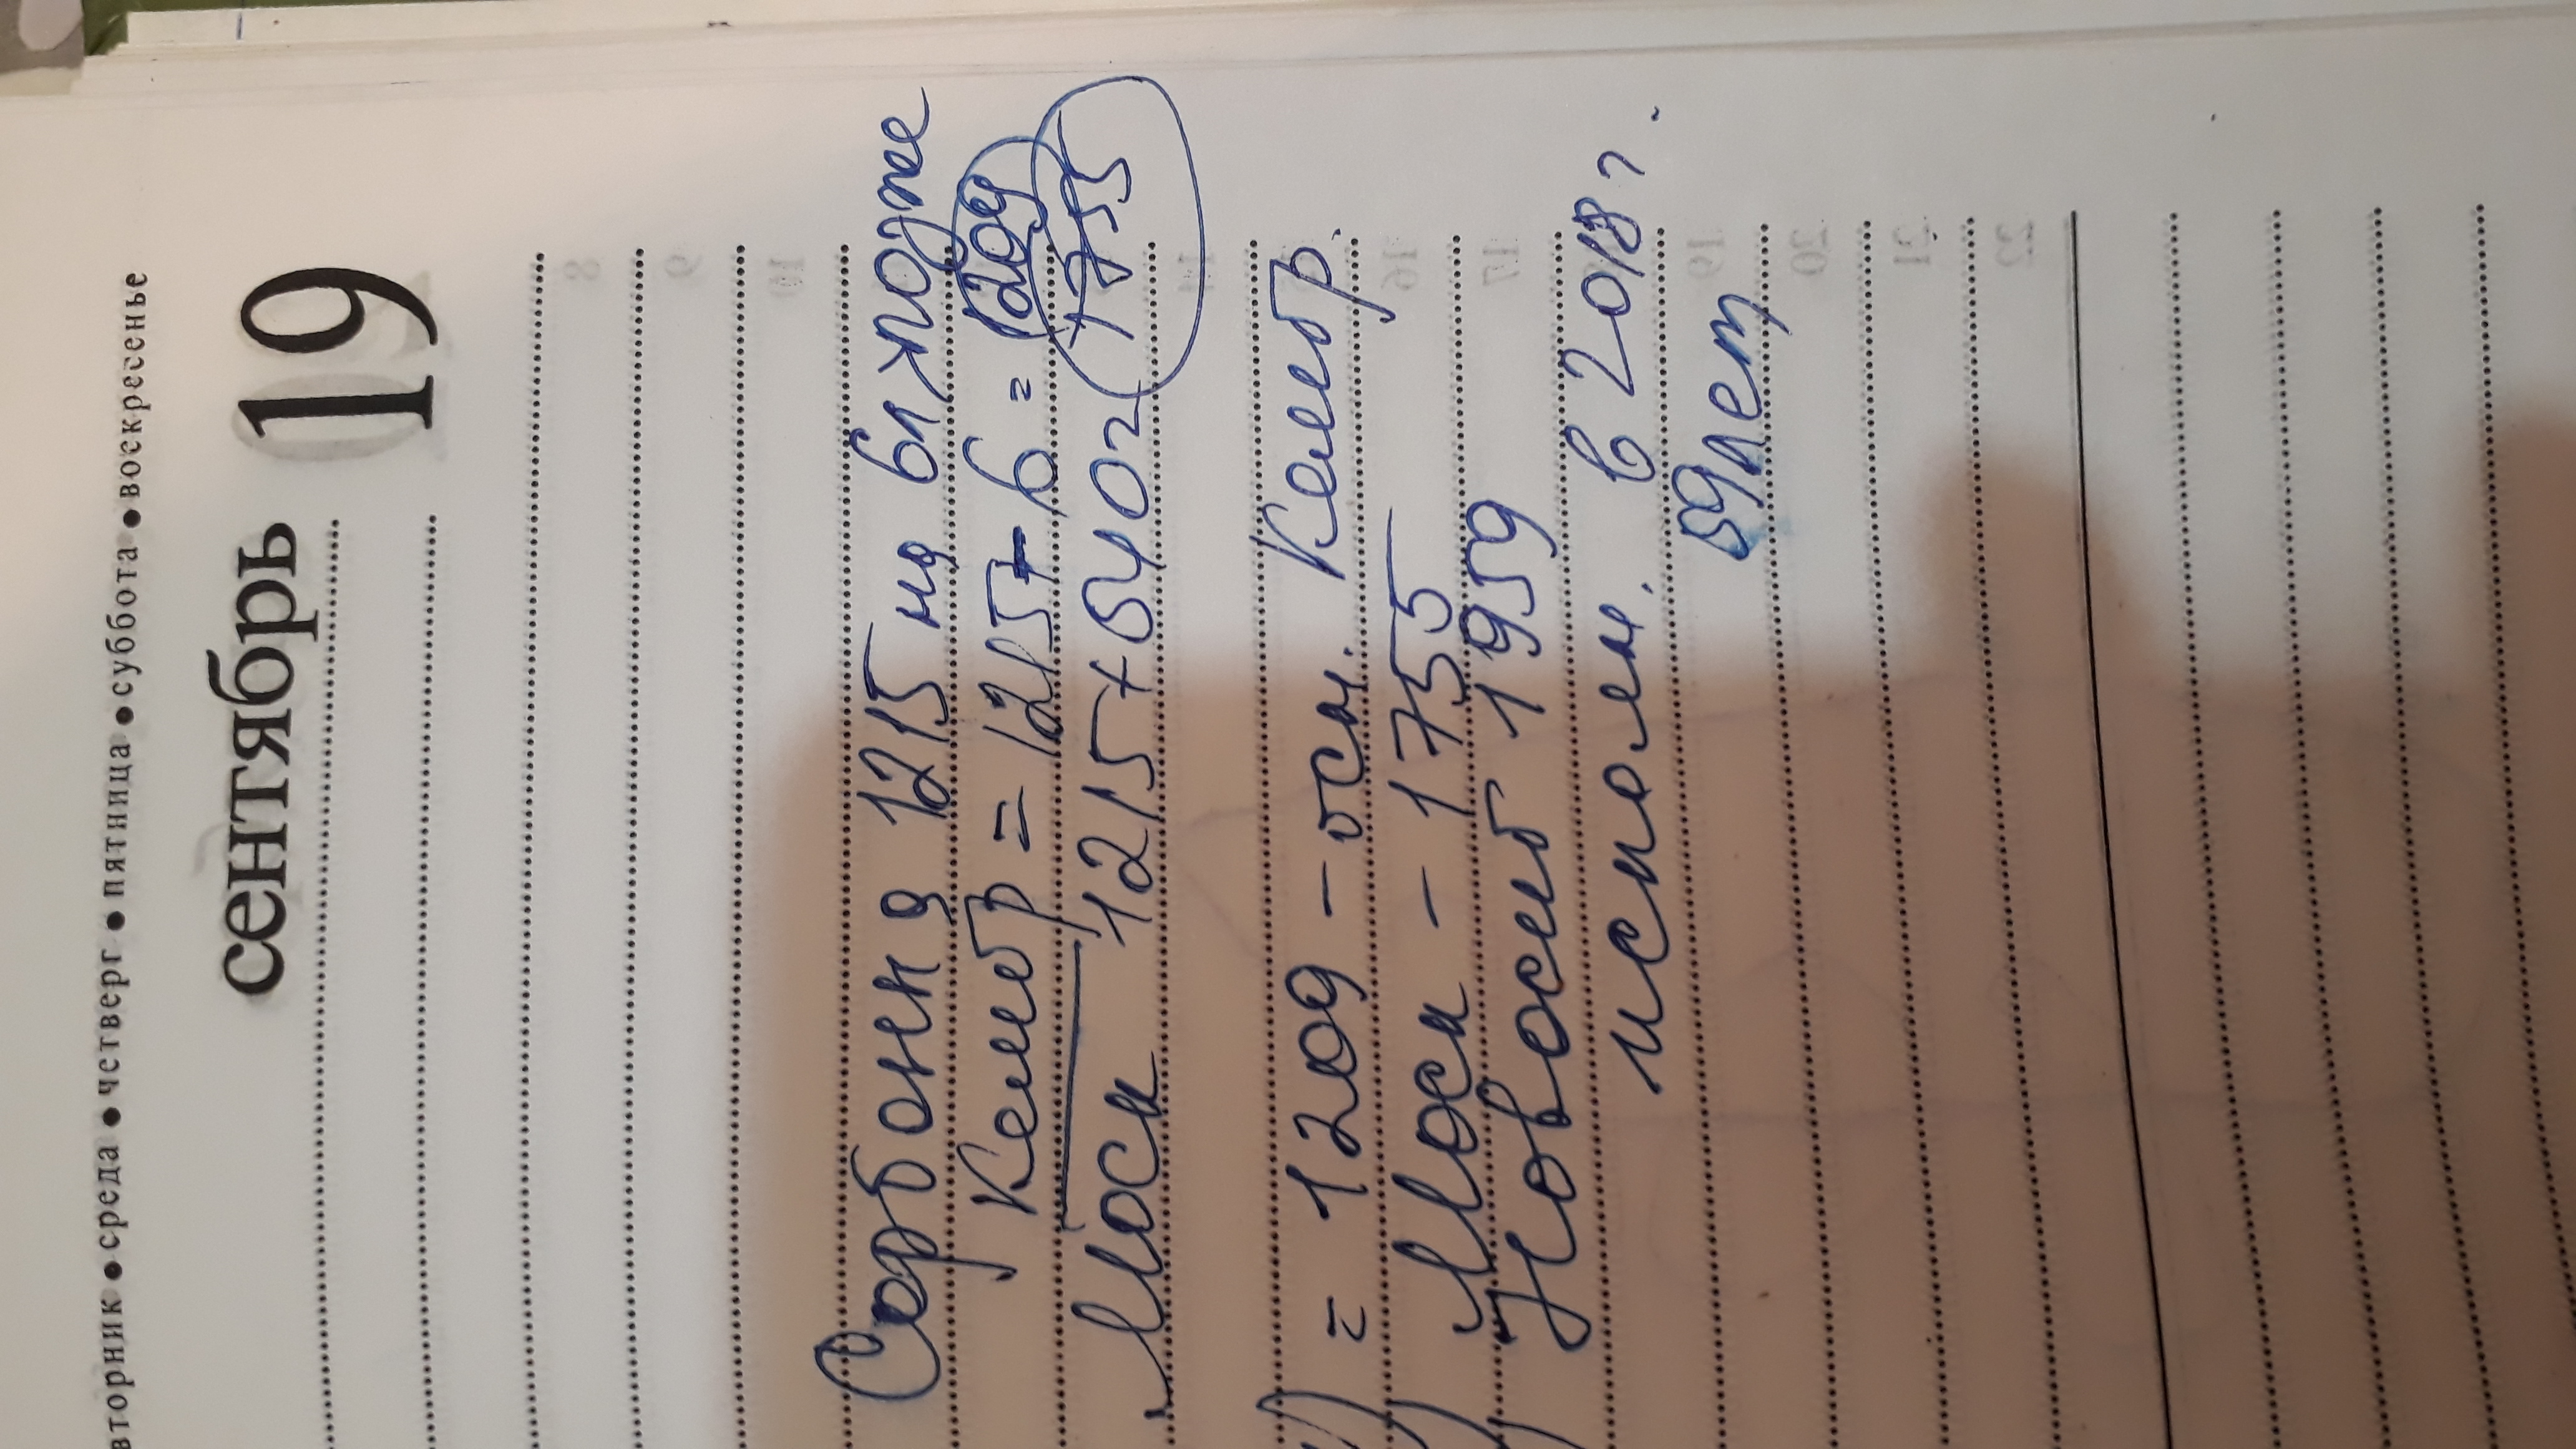 вторник • среда • четверг • пятница • суббота • воскресенье
сентябрь 19
Сорбонна 1215 на 6л позже
Кембр = 1215 - 6 = 1209
Моск 1215 + 540 = 1755
= 1209 - осн. Кембр.
Моск - 1755
Новосиб 1959
исполн. в 2018 г.
59 лет